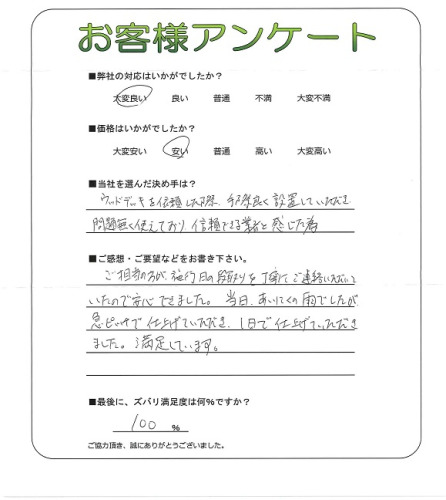 お客様アンケート
■弊社の対応はいかがでしたか？
大変良い 良い 普通 不満 大変不満
■価格はいかがでしたか？
大変安い 安い 普通 高い 大変高い
■当社を選んだ決め手は？
ウッドデッキを依頼した際、手際良く設置していただき
問題無く使えており、信頼できる業者と感じた為
■ご感想・ご要望などをお書き下さい。
ご担当の方が、施行日の段取りを丁寧にご連絡いただいて
いたので安心できました。当日、あいにくの雨でしたが
急ピッチで仕上げていただき、1日で仕上げていただき
ました。満足しています。
■最後に、ズバリ満足度は何%ですか？
100 %
ご協力頂き、誠にありがとうございました。